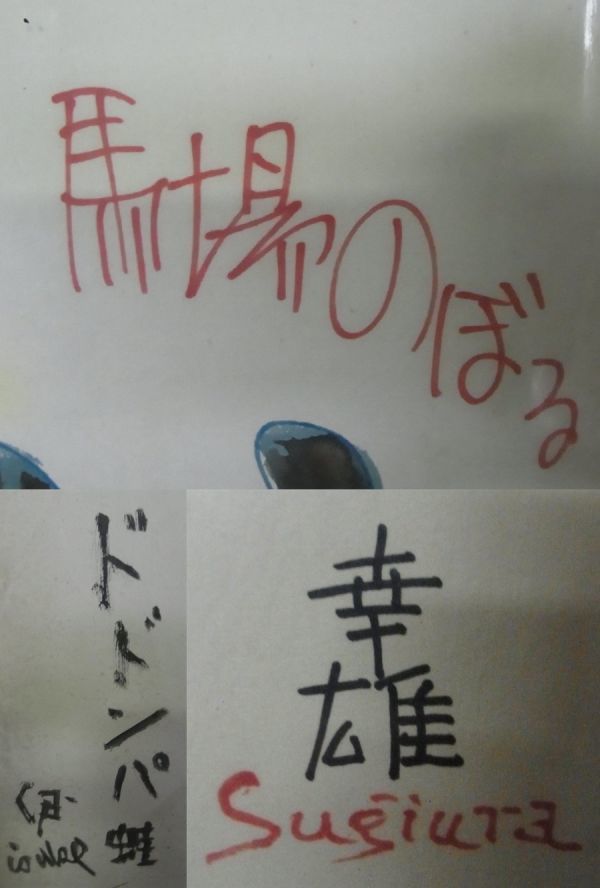 馬場のぼる
ドドンパ蛙
幸雄
Sugiura